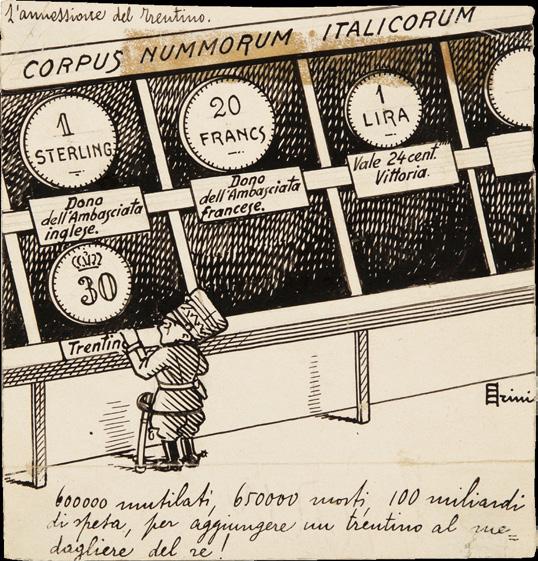 L'annessione del Trentino.
CORPUS NUMMORUM ITALICORUM
1
STERLING
20
FRANCS
1
LIRA
Dono
dell'Ambasciata
inglese.
Dono
dell'Ambasciata
francese.
Vale 24 cent.
Vittoria.
30
Trentin
600000 mutilati, 650000 morti, 100 miliardi
di spesa, per aggiungere un trentino al me=
dagliere del re!